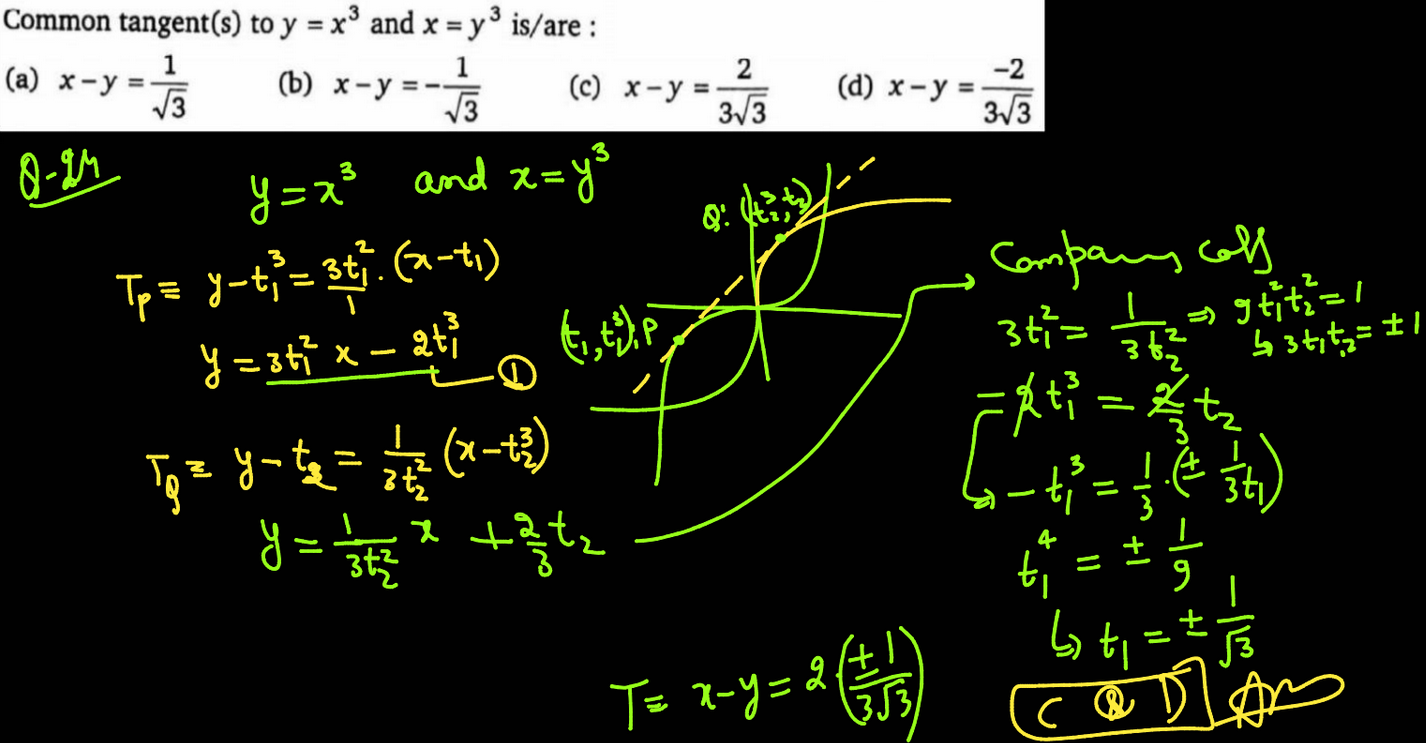 Common tangent(s) to y = x³ and x = y³ is/are :
(a) x − y = 1/√3 (b) x − y = −1/√3 (c) x − y = 2/3√3 (d) x − y = −2/3√3
Q-24
y = x³ and x = y³
T_P ≡ y − t₁³ = 3t₁²/1 · (x − t₁)
y = 3t₁² x − 2t₁³ — ①
T_Q ≡ y − t₂ = 1/3t₂² (x − t₂³)
y = 1/3t₂² x + 2/3 t₂
Q: (t₂³, t₂)
(t₁, t₁³): P
Comparing coeff
3t₁² = 1/3t₂² ⇒ 9t₁²t₂² = 1
↳ 3t₁t₂ = ±1
−2t₁³ = 2/3 t₂
↳ −t₁³ = 1/3 · (± 1/3t₁)
t₁⁴ = ± 1/9
↳ t₁ = ± 1/√3
T ≡ x − y = 2(±1/3√3)
C & D Ans